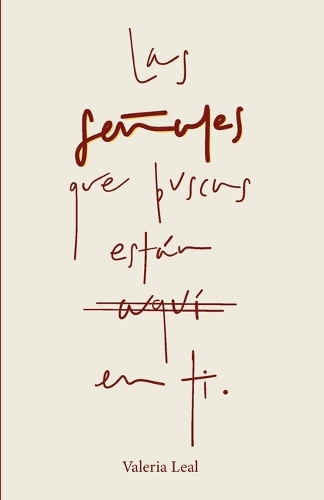 Las
señales
que buscas
están
aquí
en ti.
Valeria Leal